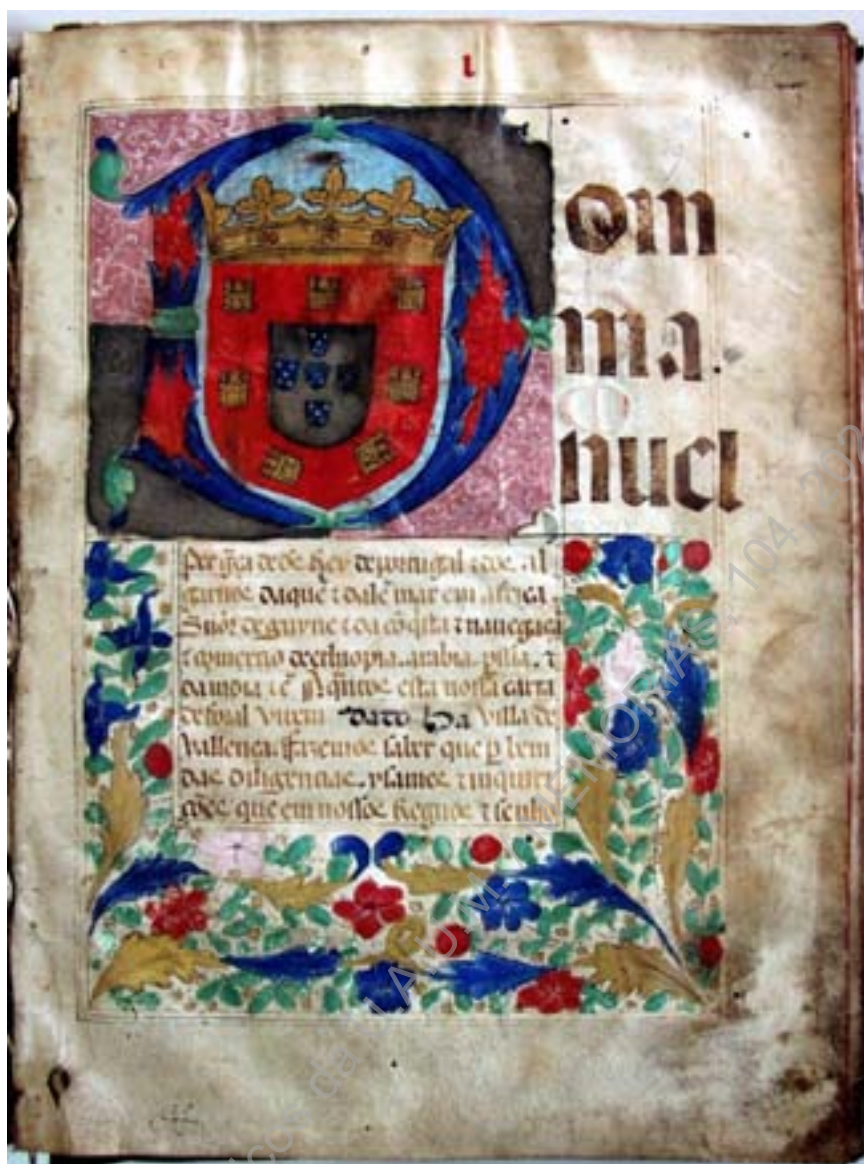 l
Dom
ma
nuel
Per gr̃ca de ds̃ Rey de portugal ⁊ dos al
garues daquē ⁊ dalē mar em africa.
Sñor de guyne ⁊ da cõqĩsta ⁊ nauegaçã
⁊ comerçio de ethiopia. arabia. psĩa. ⁊
da india ⁊c̃ A qñtos esta nossa carta
de foral virem dado ha villa de
Vallença. fazemos saber que ꝑ bem
das diligençias. ysames ⁊ inquiri
çoões que em nossos Regnos ⁊ senho
MEMORIAE, 104, 202